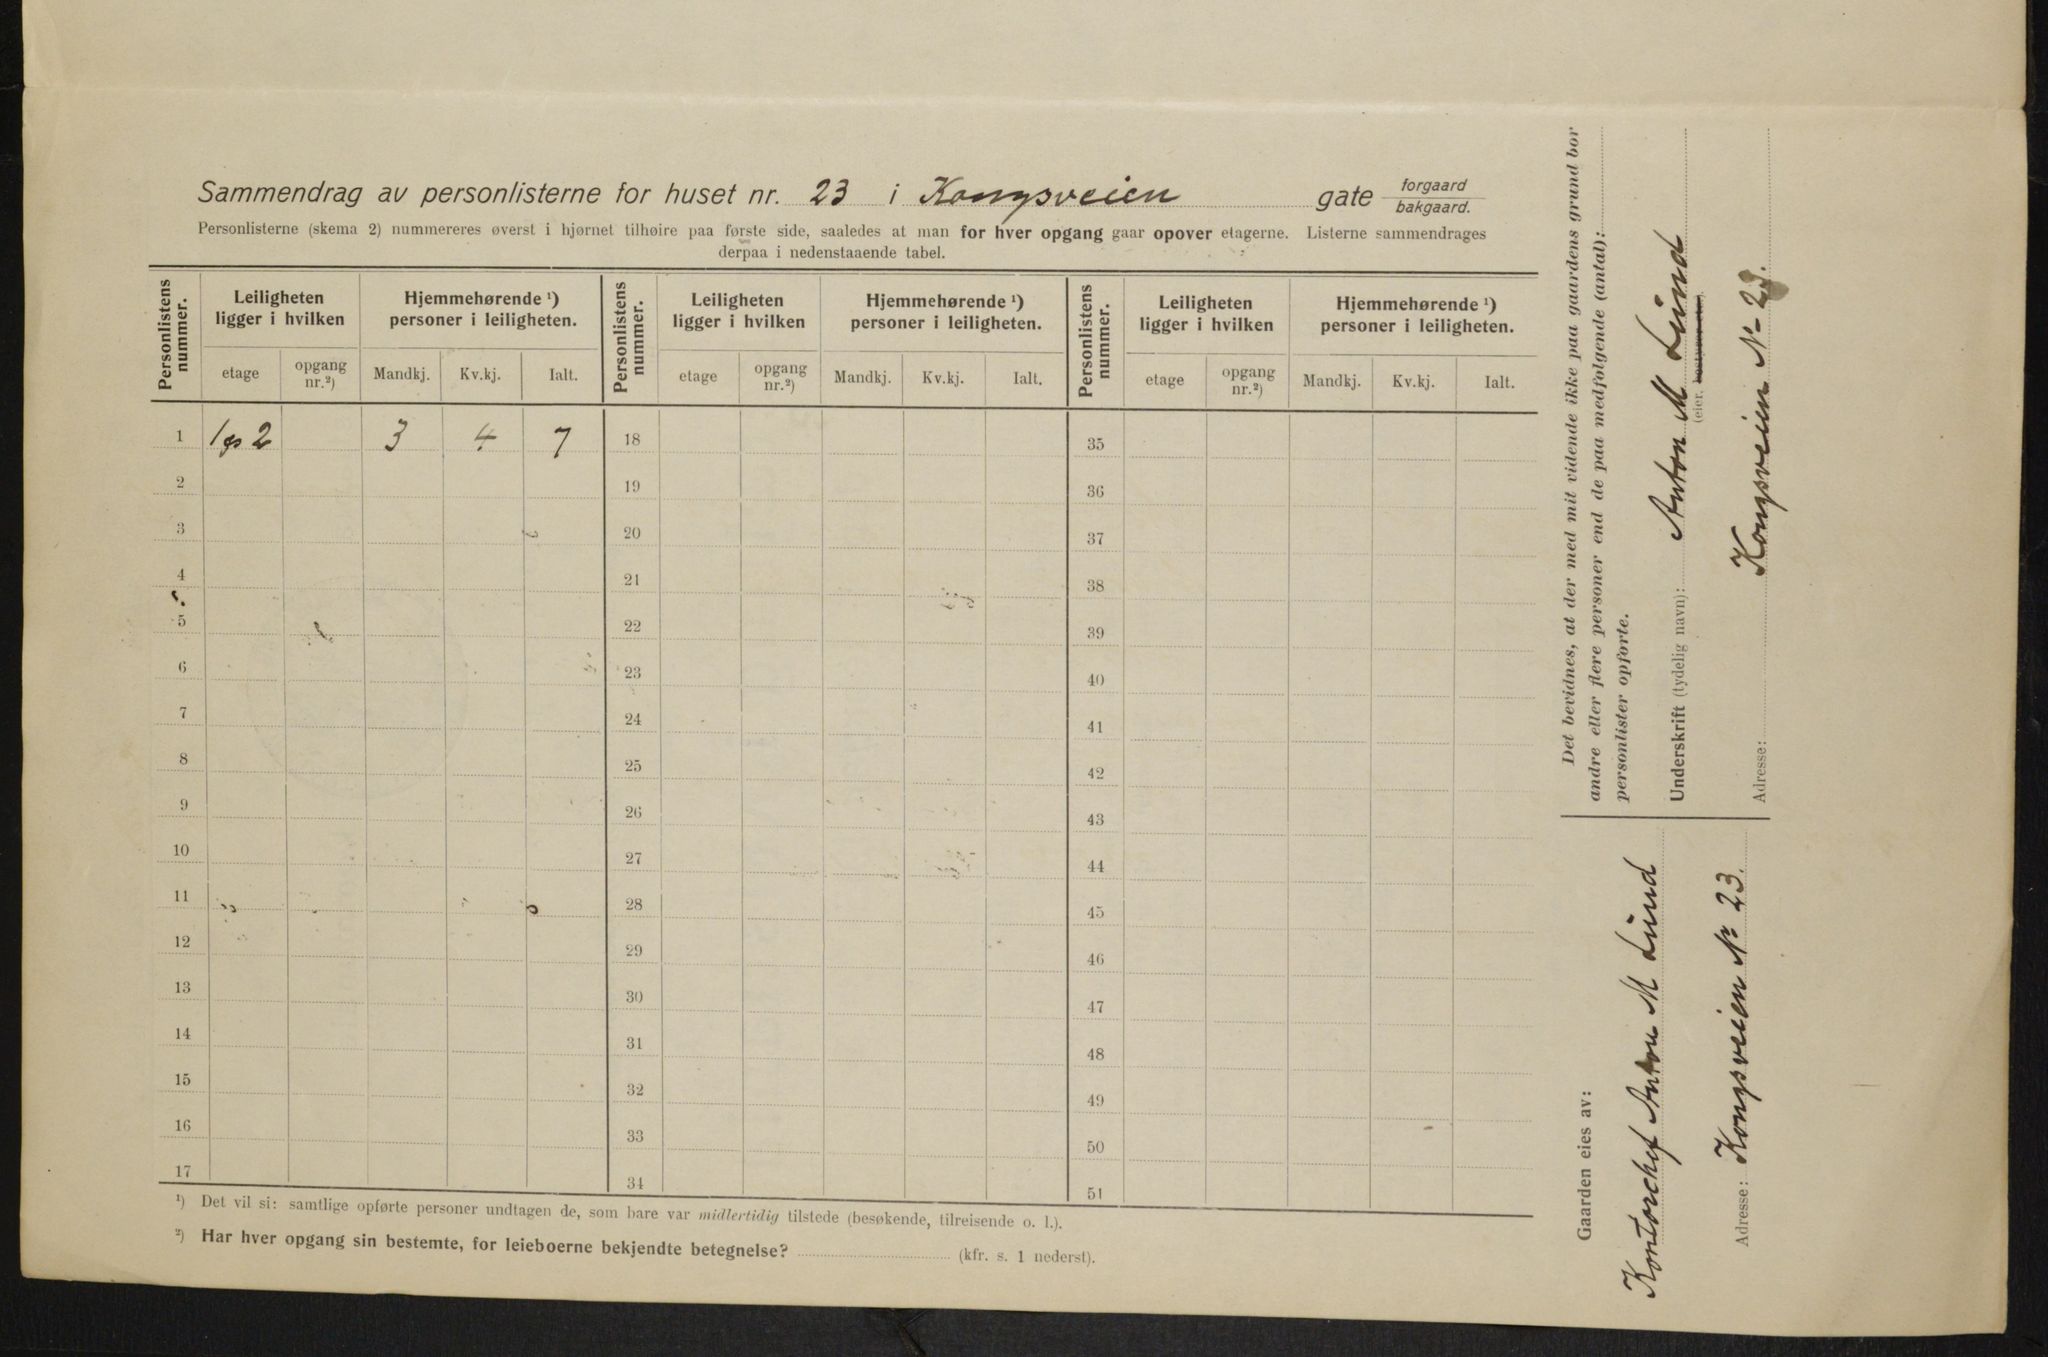 Sammendrag av personlisterne for huset nr. 23 i Kongsveien gate forgaard bakgaard.
Personlisterne (skema 2) nummereres øverst i hjørnet tilhøire paa første side, saaledes at man for hver opgang gaar opover etagerne. Listerne sammendrages
derpaa i nedenstaaende tabel.
Personlistens nummer. Leiligheten ligger i hvilken Hjemmehørende ¹) personer i leiligheten. Personlistens nummer. Leiligheten ligger i hvilken Hjemmehørende ¹) personer i leiligheten. Personlistens nummer. Leiligheten ligger i hvilken Hjemmehørende ¹) personer i leiligheten.
etage opgang nr.²) Mandkj. Kv.kj. Ialt. etage opgang nr.²) Mandkj. Kv.kj. Ialt. etage opgang nr.²) Mandkj. Kv.kj. Ialt.
1 1 2 3 4 7 18 35
2 19 36
3 20 37
4 21 38
5 22 39
6 23 40
7 24 41
8 25 42
9 26 43
10 27 44
11 28 45
12 29 46
13 30 47
14 31 48
15 32 49
16 33 50
17 34 51
¹) Det vil si: samtlige opførte personer undtagen de, som bare var midlertidig tilstede (besøkende, tilreisende o. l.).
²) Har hver opgang sin bestemte, for leieboerne bekjendte betegnelse? (kfr. s. 1 nederst).
Det bevidnes, at der med mit vidende ikke paa gaardens grund bor
andre eller flere personer end de paa medfølgende (antal):
personlister opførte.
Underskrift (tydelig navn): Anton M Lund
(eier,
Adresse: Kongsveien Nr 23.
Gaarden eies av:
Kontorchef Anton M Lund
Adresse: Kongsveien Nr 23.